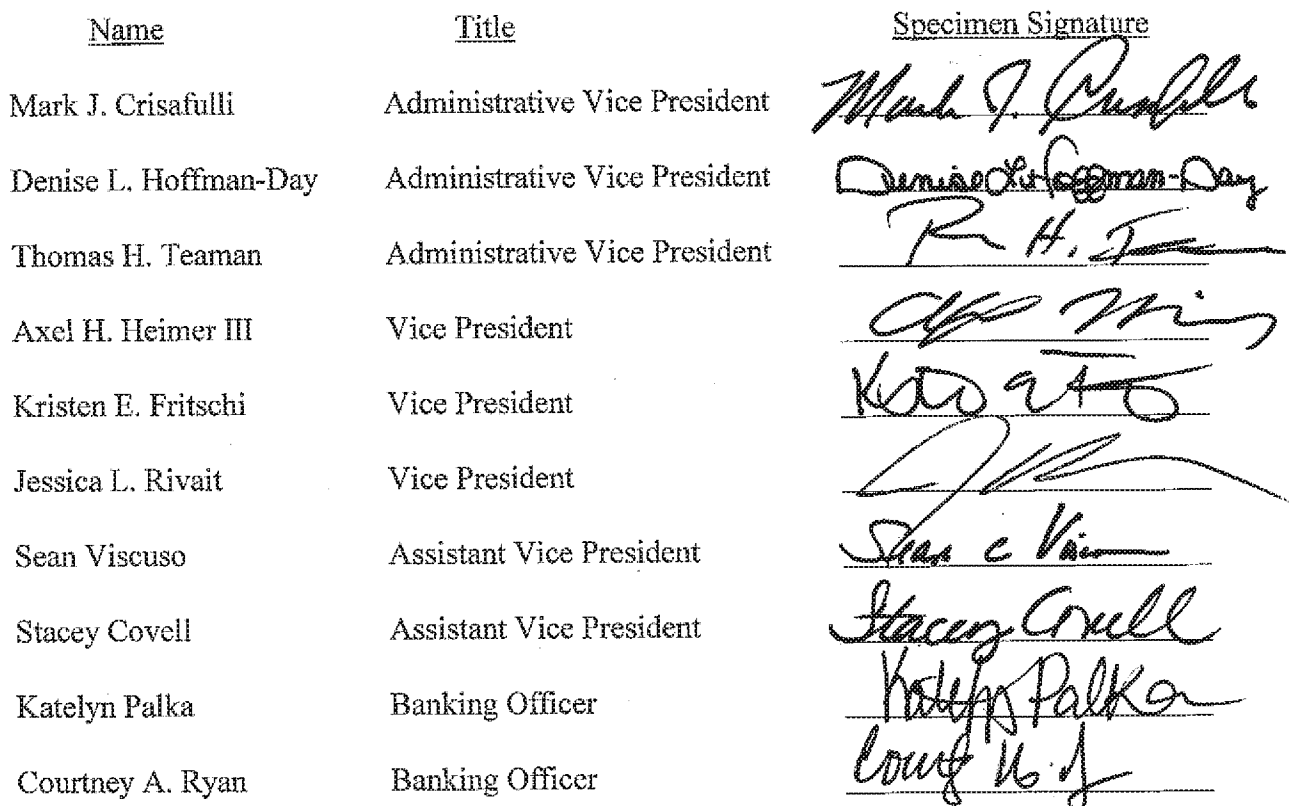 Name Title Specimen Signature
Mark J. Crisafulli Administrative Vice President Mark J.
Denise L. Hoffman-Day Administrative Vice President Denise L. Hoffman-Day
Thomas H. Teaman Administrative Vice President H.
Axel H. Heimer III Vice President
Kristen E. Fritschi Vice President
Jessica L. Rivait Vice President
Sean Viscuso Assistant Vice President Sean C
Stacey Covell Assistant Vice President Stacey Covell
Katelyn Palka Banking Officer Katelyn Palka
Courtney A. Ryan Banking Officer